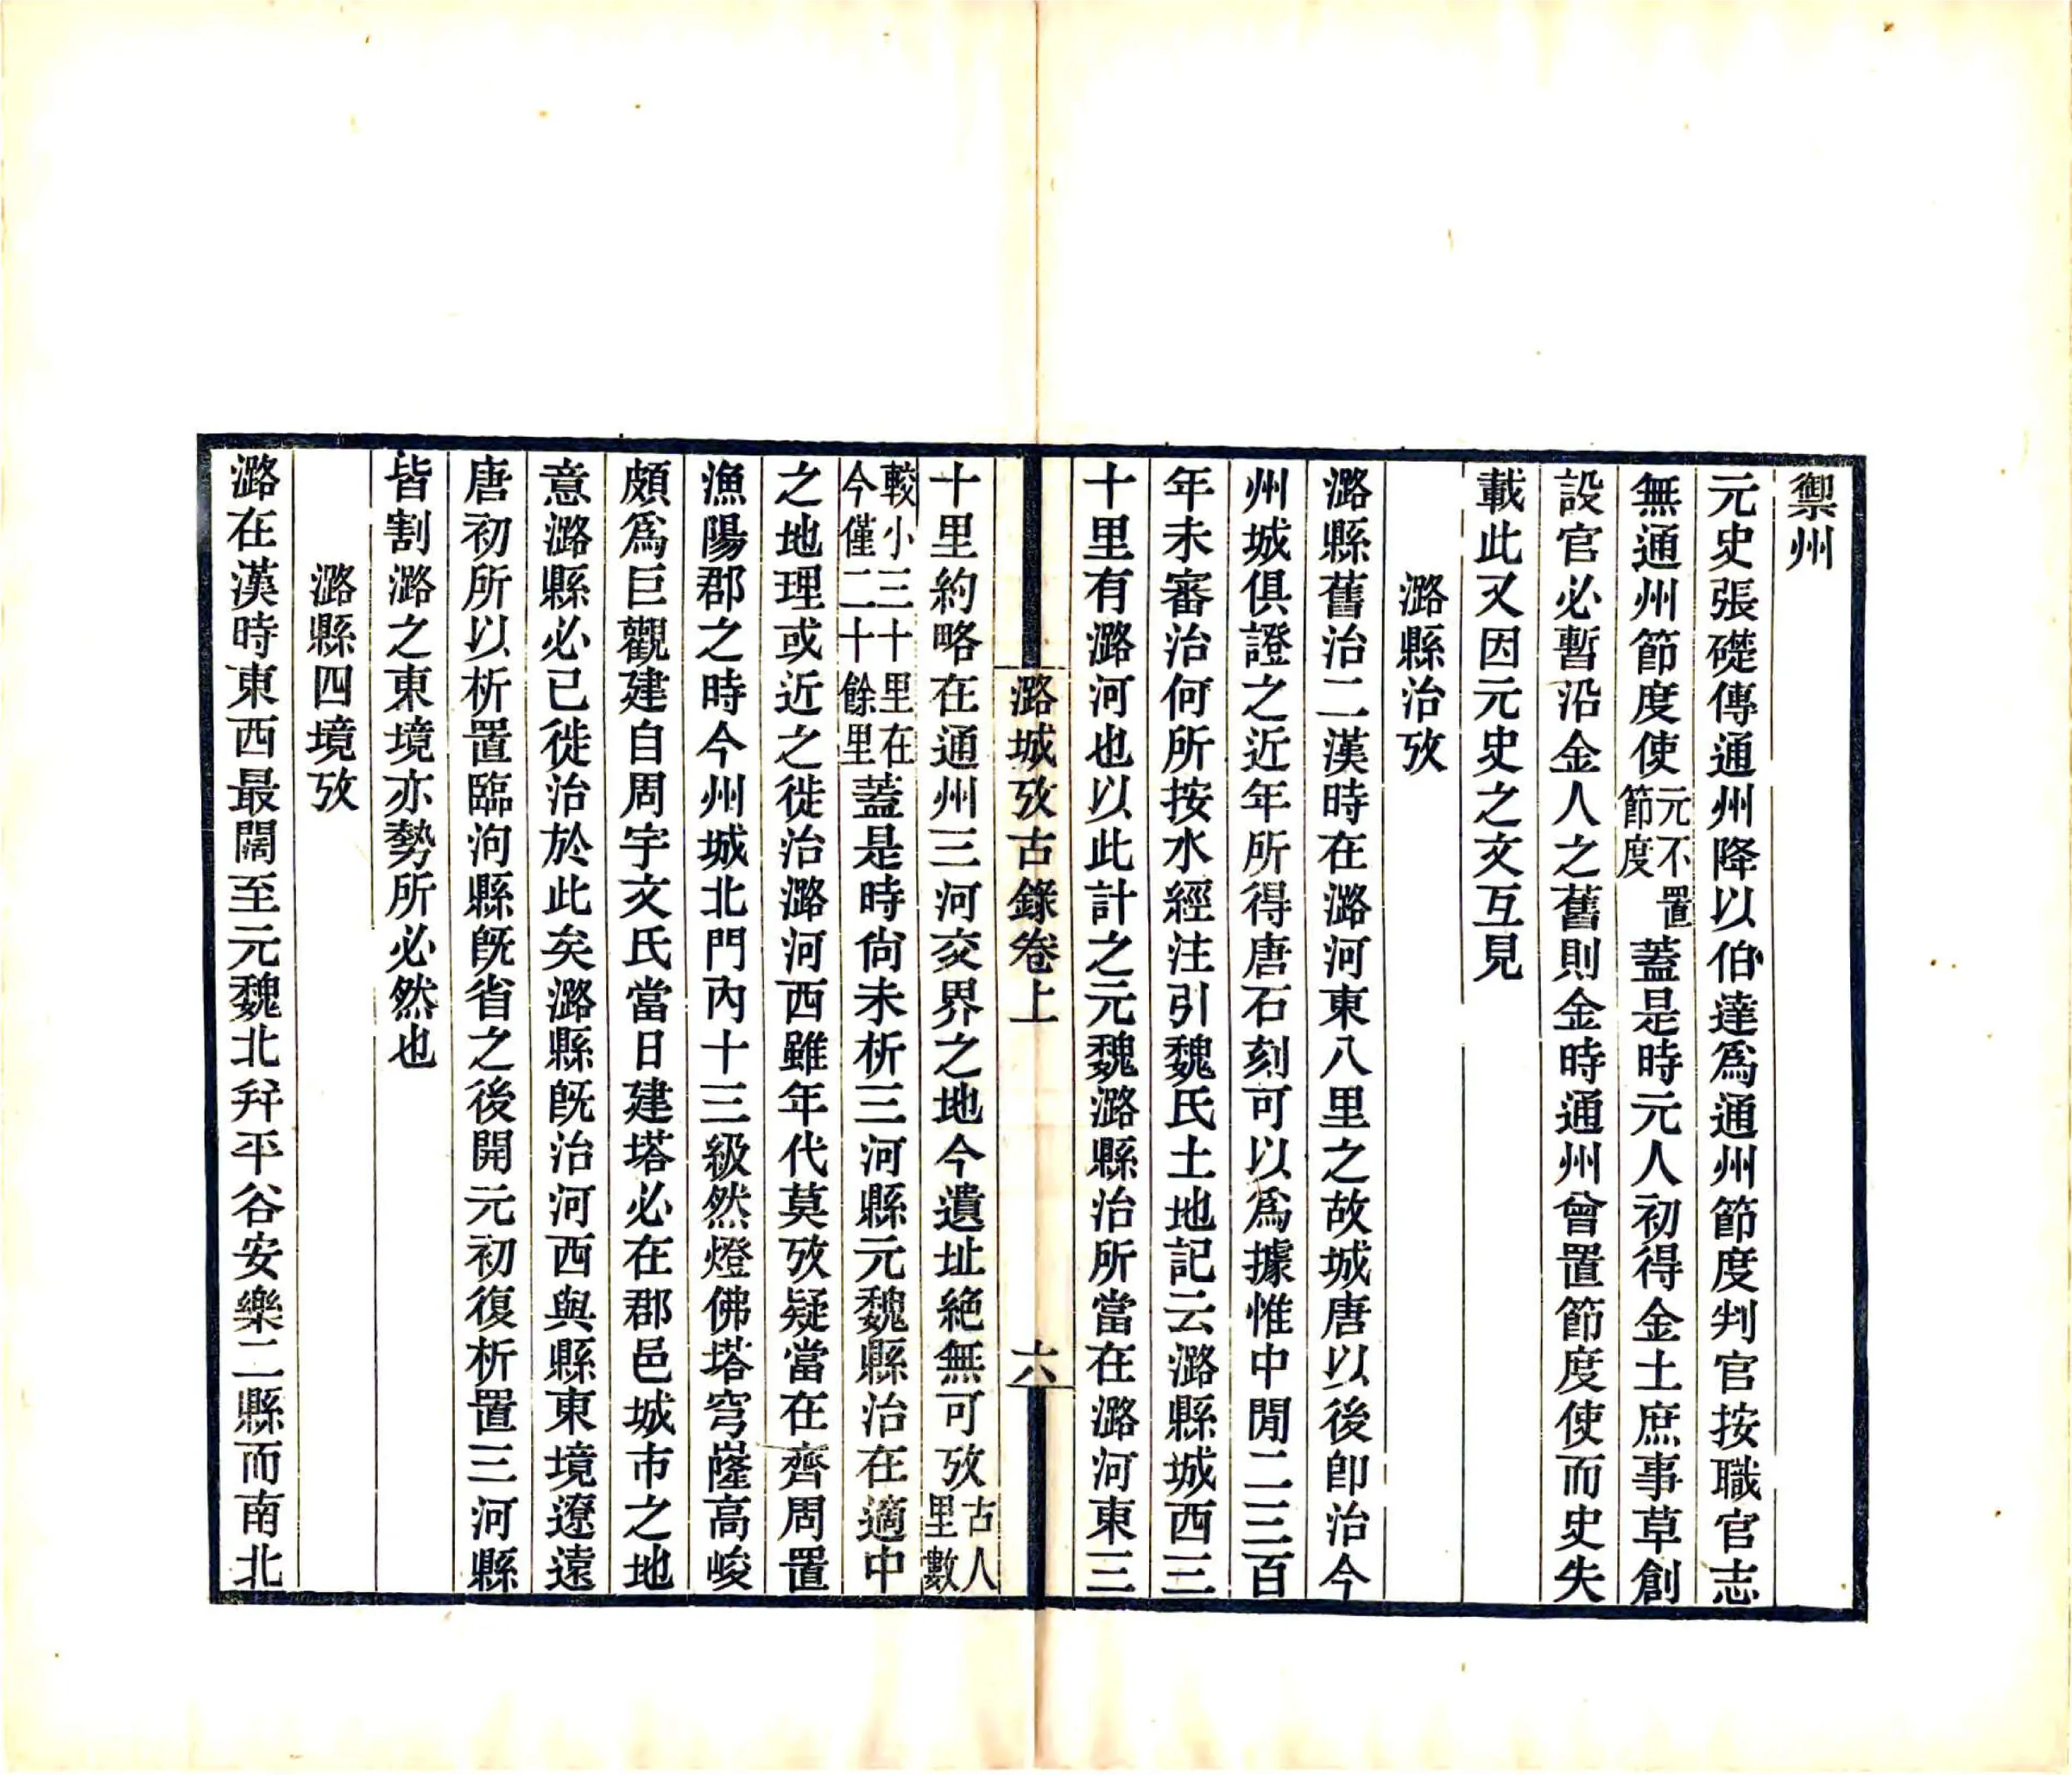 禦州
元史張礎傳通州降以伯達爲通州節度判官按職官志
無通州節度使元不置節度蓋是時元人初得金土庶事草創
設官必暫沿金人之舊則金時通州曾置節度使而史失
載此又因元史之文互見
潞縣治攷
潞縣舊治二漢時在潞河東八里之故城唐以後卽治今
州城俱證之近年所得唐石刻可以爲據惟中閒二三百
年未審治何所按水經注引魏氏土地記云潞縣城西三
十里有潞河也以此計之元魏潞縣治所當在潞河東三
潞城攷古錄卷上 六
十里約略在通州三河交界之地今遺址絶無可攷古人里數
較小三十里在今僅二十餘里蓋是時尙未析三河縣元魏縣治在適中
之地理或近之徙治潞河西雖年代莫攷疑當在齊周置
漁陽郡之時今州城北門內十三級然燈佛塔穹窿高峻
頗爲巨觀建自周宇文氏當日建塔必在郡邑城市之地
意潞縣必已徙治於此矣潞縣旣治河西與縣東境遼遠
唐初所以析置臨泃縣旣省之後開元初復析置三河縣
皆割潞之東境亦勢所必然也
潞縣四境攷
潞在漢時東西最闊至元魏北幷平谷安樂二縣而南北